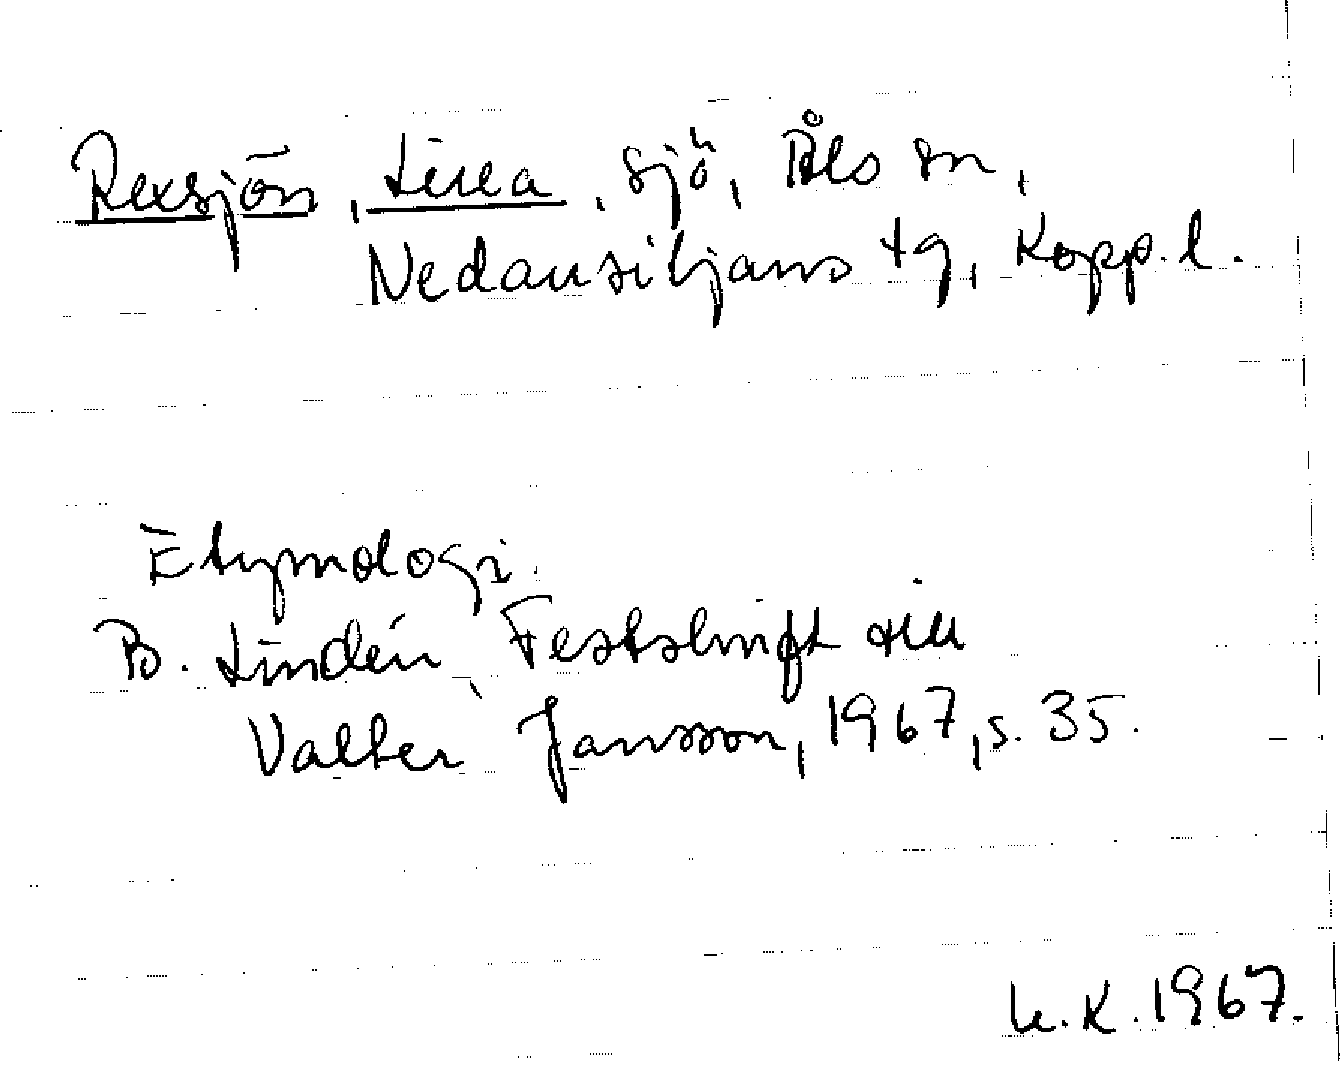 Rexsjön, Lilla, sjö, Åls sn,
Nedansiljans tg, Kopp. l.
Etymologi.
B. Lindén, Festskrift till
Valter Jansson, 1967, s. 35.
K. 1967.